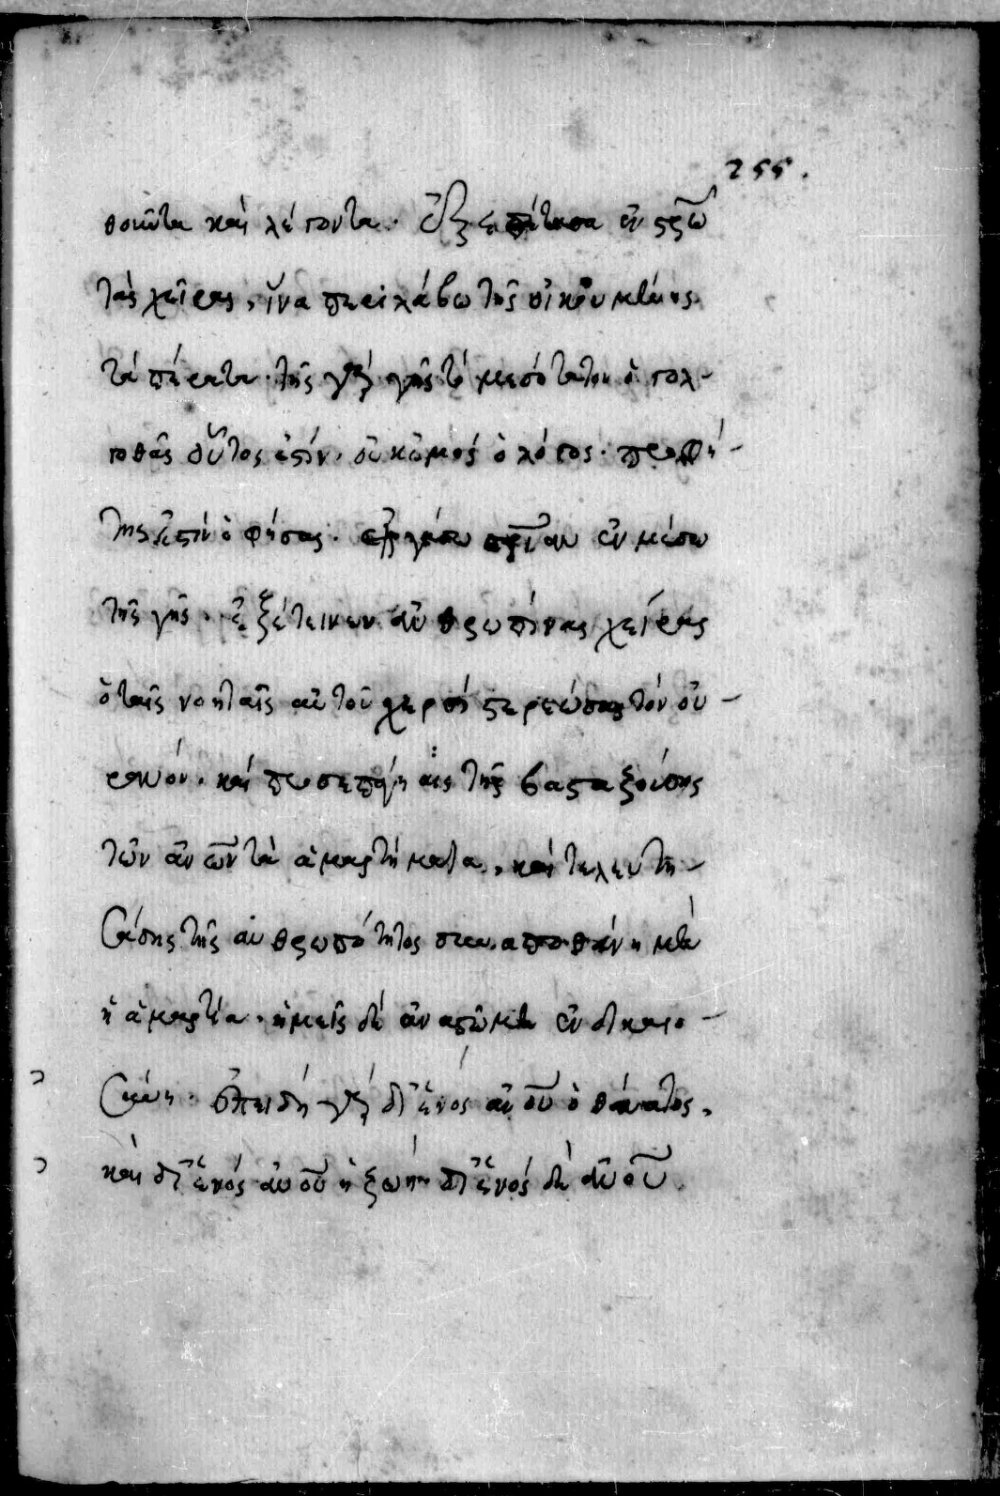 255.
θοῦντα καὶ λέγοντα. ἐξεπέτασα ἐν στρῶ
τὰς χεῖρας, ἵνα περιλάβω τῆς οἰκουμένης
τὰ πέρατα. τῆς γὰρ γῆς τὸ μεσότατον ὁ γολ-
γοθᾶς οὗτός ἐστίν. οὐκ ἐμὸς ὁ λόγος. προφή-
της ἐστὶν ὁ φήσας. εἰργάσω σρίαν ἐν μέσω
τῆς γῆς. ἐξέτεινεν ἀνθρωπίνας χεῖρας
ὁ ταῖς νοηταῖς αὐτοῦ χερσὶ στερεώσας τὸν οὐ-
ρανόν. καὶ προσεπάγη τῆς βασταζούσης
τῶν ἀνων τὰ ἁμαρτήματα, καὶ τελευτη-
σάσης τῆς ἀνθρωπότητος συναποθάνη μὲν
ἡ ἁμαρτία. ἡμεῖς δὲ ἀναστῶμεν ἐν δικαιο-
σύνη. ἐπειδὴ γὰρ δι' ἑνὸς ἀνου ὁ θάνατος,
καὶ δι' ἑνὸς ἀνου ἡ ζωή. δι' ἑνὸς δὲ ἀνου